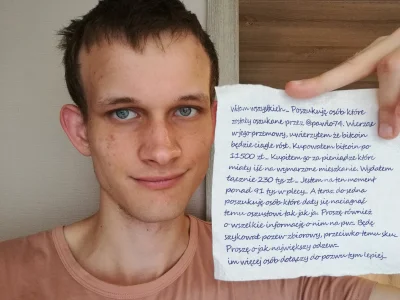 Witam wszystkich... Poszukuję osób które
zostały oszukane przez @pawło74. Wierząc
w jego przemowy, uwierzyłem że bitcoin
będzie ciągle rósł. Kupowałem bitcoin po
11500 zł... Kupiłem go za pieniądze które
miały iść na wymarzone mieszkanie. Wydałem
łącznie 230 tyś zł... Jestem na ten moment
ponad 91 tyś w plecy... A teraz do sedna
poszukuję osób które dały się naciągnąć
temu oszustowi tak jak ja. Proszę również
o wszelkie informację o nim na pw. Będę
szykował pozew zbiorowy, przeciwko temu sku.
Proszę o jak największy odzew
im więcej osób dołączy do pozwu tym lepiej...